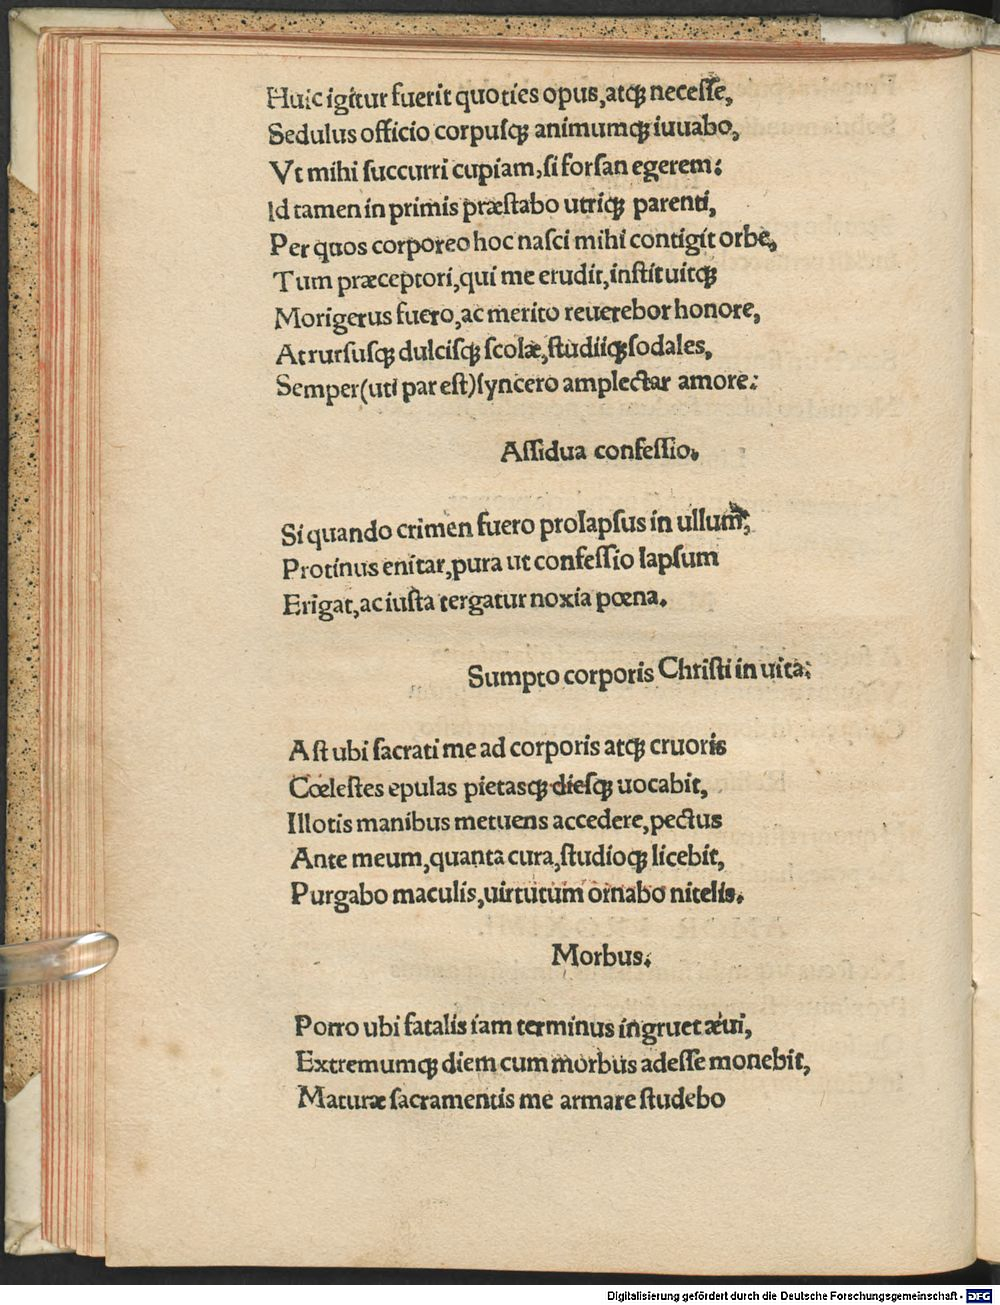 Huic igitur fuerit quoties opus, atqꝫ necesſe,
Sedulus officio corpusqꝫ animumqꝫ iuuabo,
Vt mihi ſuccurri cupiam, ſi forſan egerem:
Id tamen in primis præſtabo utriqꝫ parenti,
Per quos corporeo hoc naſci mihi contigit orbe,
Tum præceptori, qui me erudit, inſtituitqꝫ
Morigerus fuero, ac merito reuerebor honore,
At rurſusqꝫ dulciſqꝫ ſcolæ, ſtudiiqꝫ ſodales,
Semper (uti par eſt) ſyncero amplectar amore:
Aſſidua confeſſio.
Si quando crimen fuero prolapſus in ullum,
Protinus enitar, pura ut confeſſio lapſum
Erigat, ac iuſta tergatur noxia pœna.
Sumptο corporis Chriſti in uita:
Aſt ubi ſacrati me ad corporis atqꝫ cruoris
Cœleſtes epulas pietasqꝫ dieſqꝫ uocabit,
Illotis manibus metuens accedere, pectus
Ante meum, quanta cura, ſtudioqꝫ licebit,
Purgabo maculis, uirtutum ornabo nitelis.
Morbus.
Porro ubi fatalis iam terminus ingruet æui,
Extremumqꝫ diem cum morbus adeſſe monebit,
Maturæ ſacramentis me armare ſtudebo
Digitalisierung gefördert durch die Deutsche Forschungsgemeinschaft - DFG